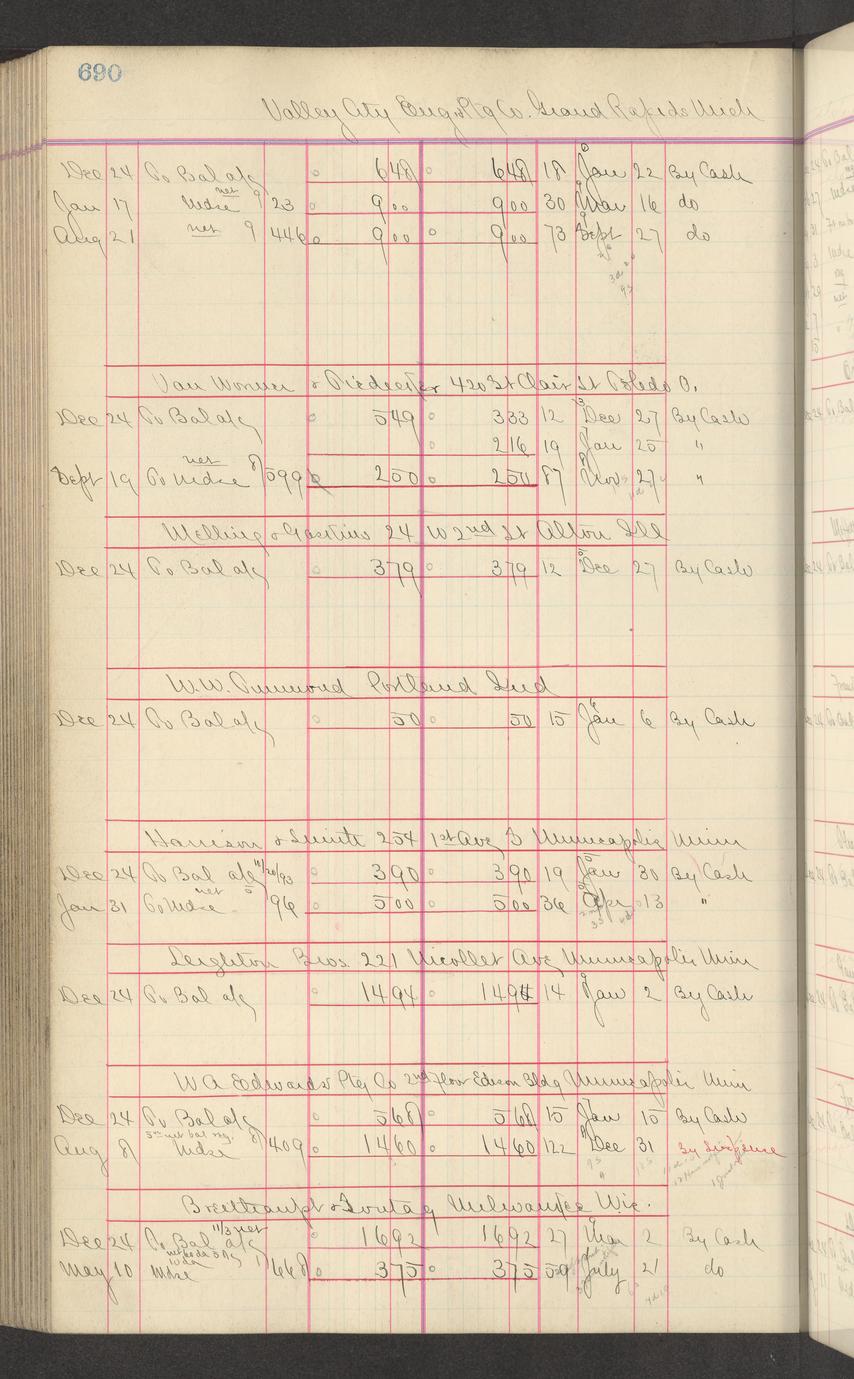 690
Valley City Eng & Ptg Co. Grand Rapids Mich
Dec 24 To Bal a/c 648 648 18 Jan 22 By Cash
Jan 17 Mdse net 9 23 900 900 30 Mar 16 do
Aug 21 net 9 446 900 900 73 Sept 27 do
Van Wormer & 420 St Clair St Toledo O.
Dec 24 To Bal a/c 549 333 12 Dec 27 By Cash
216 19 Jan 25 "
Sept 19 To Mdse net 8 599 250 250 87 Nov 27 "
24 W 2nd St Alton Ill
Dec 24 To Bal a/c 379 379 12 Dec 27 By Cash
W.W. Portland Ind
Dec 24 To Bal a/c 50 50 15 Jan 6 By Cash
Harrison & Smith 254 1st Ave S Minneapolis Minn
Dec 24 To Bal a/c 390 390 19 Jan 30 By Cash
Jan 31 To Mdse net 5 96 500 500 36 Apr 13 "
Leighton Bros. 221 Nicollet Ave Minneapolis Minn
Dec 24 To Bal a/c 1494 1494 14 Jan 2 By Cash
W A Edwards Ptg Co 2nd Floor Edison Bldg Minneapolis Minn
Dec 24 To Bal a/c 568 568 15 Jan 15 By Cash
Aug 8 Mdse 8 409 1460 1460 122 Dec 31 By Suspense
Breithaupt & Sontag Milwaukee Wis.
Dec 24 To Bal a/c 11/3 net 1692 1692 27 Mar 2 By Cash
May 10 Mdse 1 668 375 375 59 July 21 do